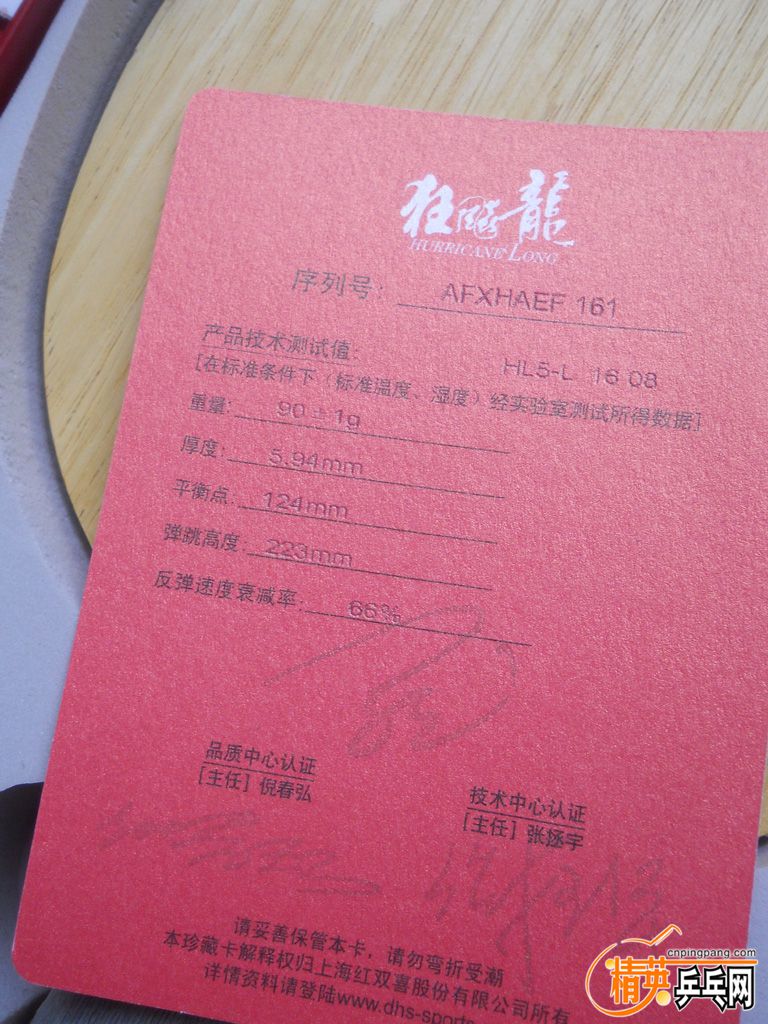 狂飚龍
HURRICANE LONG
序列号: AFXHAEF 161
产品技术测试值: HL5-L 16 08
[在标准条件下(标准温度、湿度)经实验室测试所得数据]
重量: 90±1g
厚度: 5.94mm
平衡点: 124mm
弹跳高度: 223mm
反弹速度衰减率: 66%
品质中心认证
[主任] 倪春弘
技术中心认证
[主任] 张拯宇
请妥善保管本卡,请勿弯折受潮
本珍藏卡解释权归上海红双喜股份有限公司所有
详情资料请登陆www.dhs-sports
cnpingpang.com
精英乒乓网